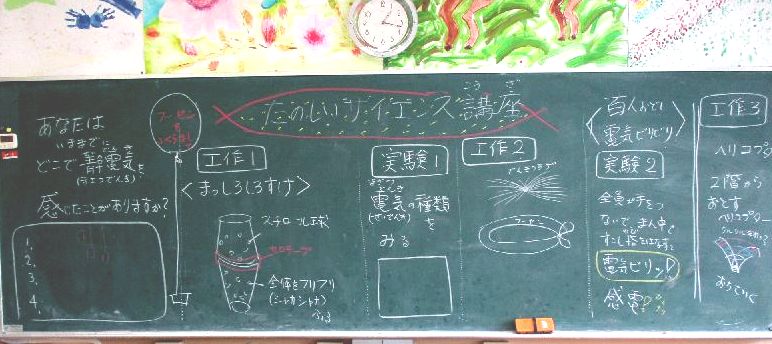 たのしいサイエンス講座
こうざ
あなたは
いままでに
どこで静電気を
(せいでんき)
感じたことがありますか?
1,
2,
3,
4,
フーセン
工作1
<まっしろしろすけ>
スチロール球
セロテープ
全体をフリフリ
実験1
電気の種類
を
みる
工作2
でんきクラゲ
フーセン
<百人おどし
電気ビリビリ>
実験2
全員が手をつ
ないで、まん中で
すこし指をはなすと
電気ビリッ
感電
工作3
ヘリコプター
2階から
おとす
ヘリコプター
おちていく